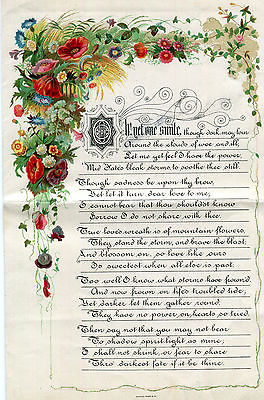 Oh, yet one smile, though dark may lour
Around thee clouds of woe and ill,
Let me yet feel I have the power,
Mid Fates bleak storms, to soothe thee still.
Though sadness be upon thy brow,
But let it turn, dear love to me,
I cannot bear that thou shouldst know
Sorrow I do not share with thee.
True love's wreath is of mountain flowers,
They stand the storm, and brave the blast,
And blossom on, so love like ours
Is sweetest when all else is past.
Too well I know what storms have frowned,
And now frown on life's troubled tide,
Yet darker let them gather round,
They have no power on hearts so tried.
Then say not that you may not bear
To shadow spirit light as mine;
I shall not shrink, or fear to share
Thro' darkest fate if it be thine.